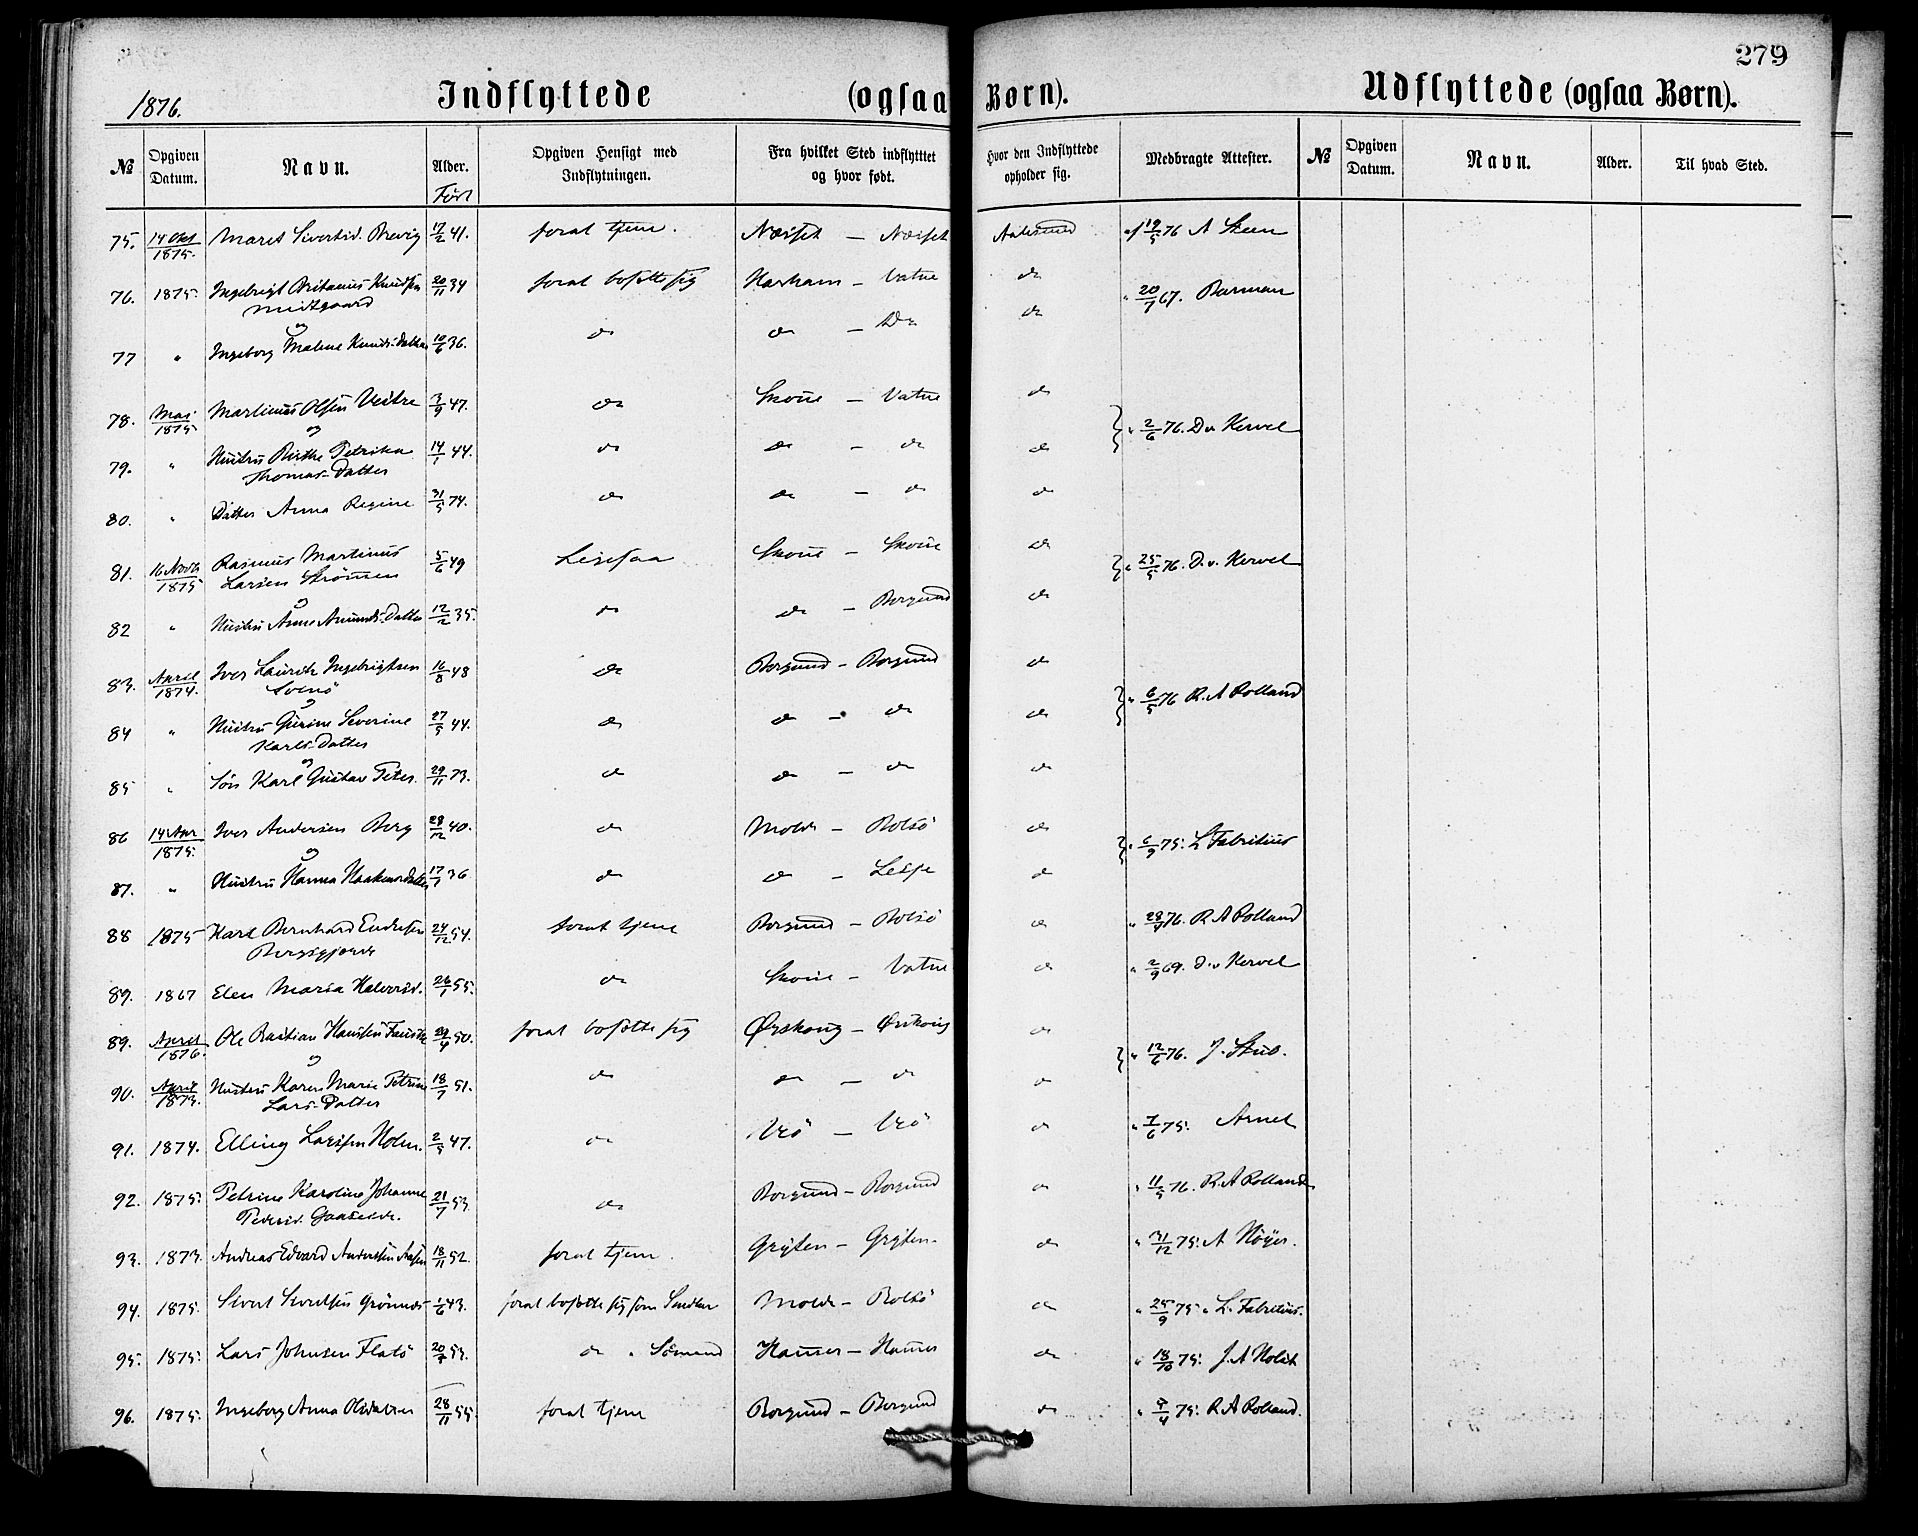 279
1876.
Indflyttede (ogsaa Børn).
Udflyttede (ogsaa Børn).
№ Opgiven Datum. Navn. Alder. Opgiven Hensigt med Indflytningen. Fra hvilket Sted indflytttet og hvor født. Hvor den Indflyttede opholder sig. Medbragte Attester. № Opgiven Datum. Navn. Alder. Til hvad Sted.
Født
75. 14 Okt 1875. Maret Sivertsd. Brevig 17/2 41. forat tjene. Næsset — Næsset Aalesund af 19/5 76 A Steen
76. 1875. Ingebrigt Knudsen 20/11 34 forat bosætte sig Harham — Vatne do " 20/7 67. Barman
Midtgaard
og
77 " Ingeborg Malene Knuds-Datter 10/6 36. do do — Do do
78. Mai 1875 Martinus Olsen Vestre 3/9 47. do Skoue — Vatne do " 2/6 76. D v Kervel
og
79. " Hustru Birthe Petrika 14/1 44. do do — do do
Thomas-Datter
80. " Datter Anna Regine 31/5 74. do do — do do
81. 16 Novb 1875 Rasmus Martinus 5/6 49 Ligesaa Skoue — Skoue do " 25/5 76. D. v. Kervel
Larsen Strømmen
og
82 " Hustru Anne Amunds-Datter 12/2 35. do do — Borgund do
83. April 1874. Iver Lauritz Ingebrigtsen 16/8 48 do Borgund — Borgund do " 6/5 76 R. A Rolland
og
84 " Hustru Gurine Severine 27/5 44. do do — do do
Karls-Datter
og
85 " Søn Karl Gustav Peter. 29/11 73. do do — do do
86 14 Apr 1875. Iver Andersen Berg 28/12 40. do Molde — Bolsø do " 6/9 75. L Fabritius
og
87. " Hustru Hanna Haakonsdatter 17/7 36 do do — Lesje do
88 1875 Karl Bernhard Endresen 24/12 54. forat tjene Borgund — Bolsø do " 28/9 76. R A Rolland
89. 1867 Elen Maria Halvorsd. 26/1 55. do Skoue — Vatne do " 2/9 69. D. v Kervel
89. April 1876. Ole Bastian Hansen 29/4 50. forat bosætte sig Ørskoug — Ørskoug do " 12/6 76. J. Stub.
og
90. April 1873. Hustru Karen Marie Petrine 18/7 51. do do — do do
Lars-Datter
91. 1874. Elling Larssen Holm. 2/5 47. do Vrø — Vrø do " 7/6 75. Arnet
92. 1875. Petrine Karoline Johanne 21/7 53. do Borgund — Borgund do " 11/5 76. R. A Rolland
Pedersd. Gaaseide.
93. 1873. Andreas Edvard Anderssen 18/11 52. forat tjene. Gryten — Gryten. do " 31/12 75. A Höyer.
94. 1875. Sivert Sivertsen 1/6 43. forat bosætte sig som Snedker Molde — Bolsø do " 25/9 75. L. Fabritius.
95. 1875. Lars Johnsen Flatø 20/7 53. do " Sømand Hammer — Hammer do " 18/10 75. J. A Holst
96. 1875. Ingeborg Anna Olsdatter 28/11 55. forat tjene Borgund — Borgund do " 9/4 75. R A Rolland.